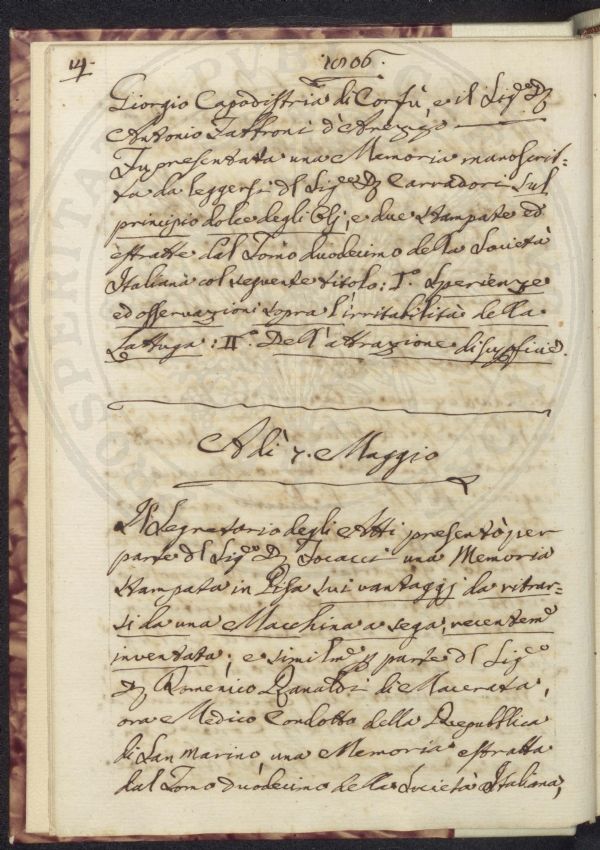 14.
1806.
Giorgio Capodistria di Corfù, e il Sigr Dr
Antonio Fabbroni d'Arezzo
Fu presentata una Memoria manoscrit=
ta da leggersi dl Sigre Dr Carradori sul
principio dolce degli Olj, e due stampate ed
estratte dal Tomo duodecimo della Società
Italiana col seguente titolo: I.° Sperienze
ed osservazioni sopra l'irritabilità della
Lattuga: II.° Dell'attrazione di superficie.
Adì 7. Maggio
Il Segretario degli Atti presentò per
parte dl Sigre Dr Tocacci una Memoria
stampata in Pisa sui vantaggj da ritrar=
si da una Macchina a sega, recentemte
inventata; e similmte p parte dl Sigre
Dr Domenico Ranaldi di Macerata,
ora Medico Condotto della Repubblica
di San Marino, una Memoria estratta
dal Tomo duodecimo della Società Italiana,